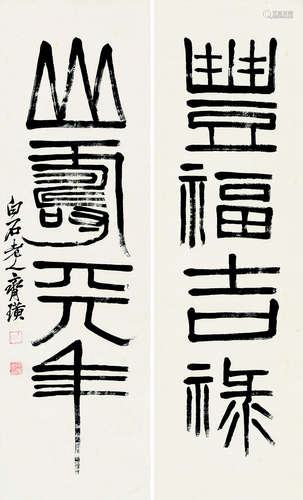 豐福吉祿
山壽元年
白石老人齊璜